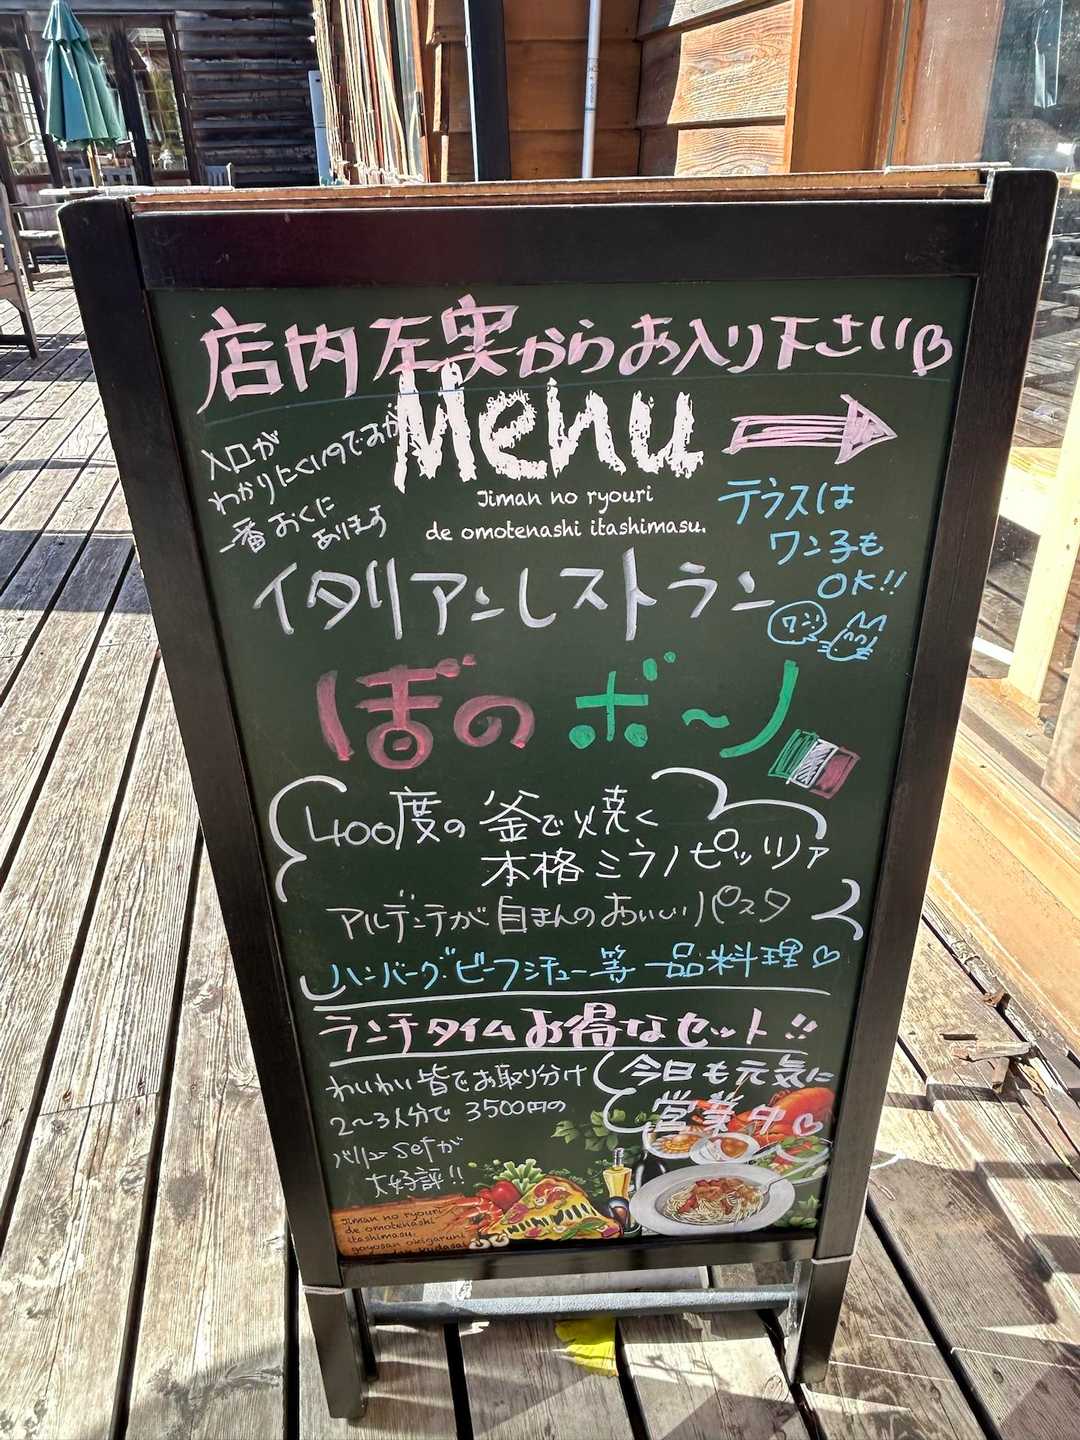 店内左奥からお入り下さい
Menu
入口が
わかりにくいのですが
一番おくに
あります
Jiman no ryouri
de omotenashi itashimasu.
テラスは
ワン子も
OK!!
ワン!
イタリアンレストラン
ぼのボ〜ノ
400度の釜で焼く
本格ミラノピッツァ
アルデンテが自まんのおいしいパスタ
ハンバーグ・ビーフシチュー等 一品料理♡
ランチタイムお得なセット!!
わいわい皆でお取り分け
2〜3人分で3500円の
バリューsetが
大好評!!
今日も元気に
営業中♡
Jiman no ryouri
de omotenashi
itashimasu.
goyosan okigaruni